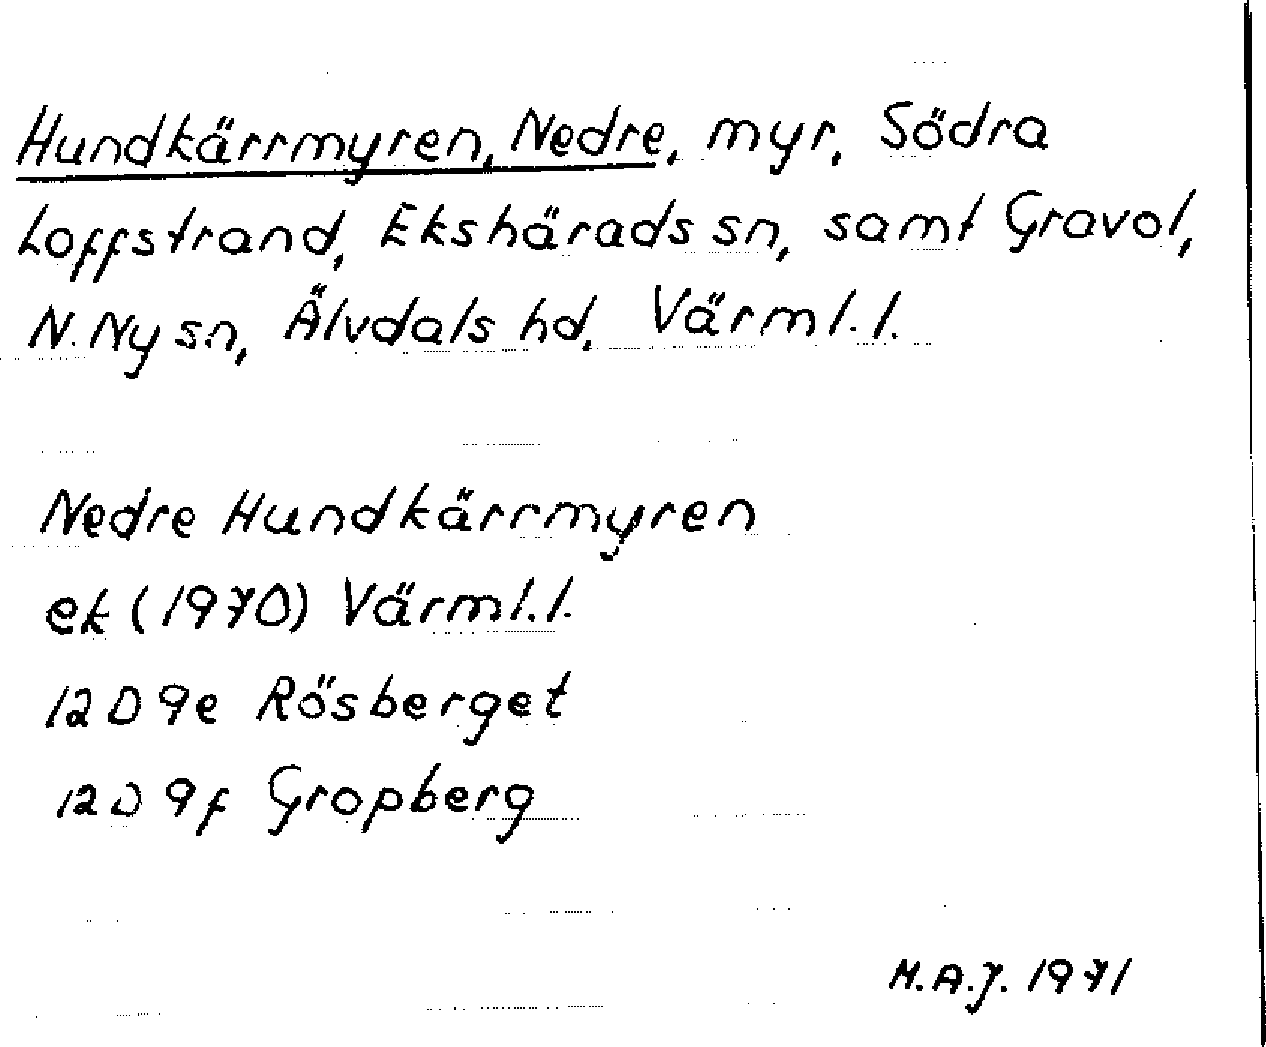 Hundkärrmyren, Nedre, myr, Södra
Loffstrand, Ekshärads sn, samt Gravol,
N. Ny sn, Älvdals hd, Värml. l.
Nedre Hundkärrmyren
ek (1970) Värml. l.
12 D 9e Rösberget
12 D 9f Gropberg
M.A.J. 1971